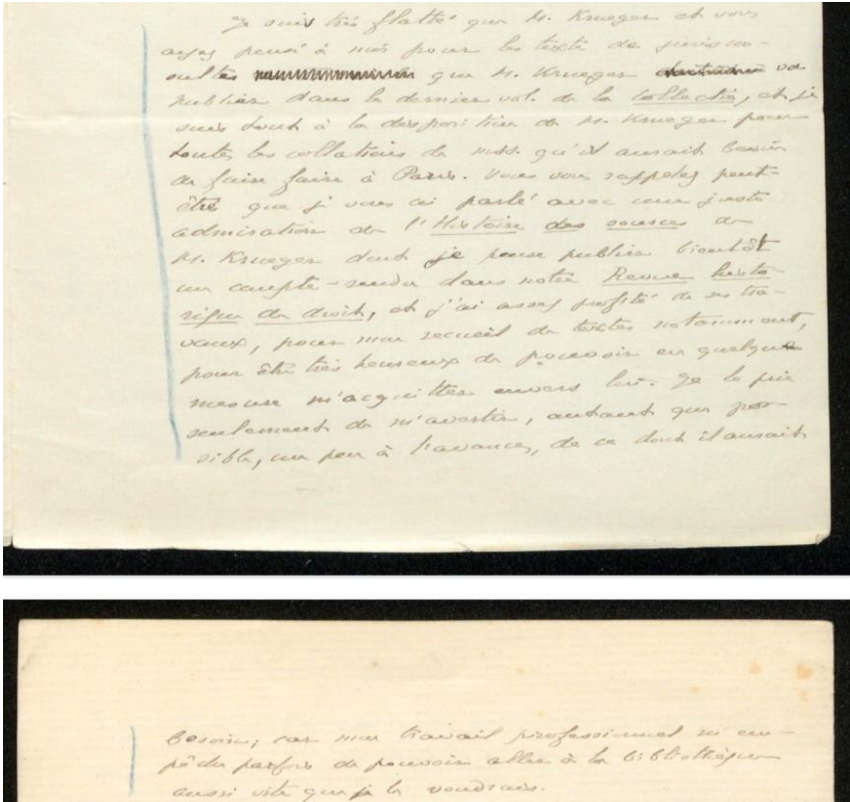 Je suis très flatté que M. Krueger et vous
ayez pensé à moi pour les textes de juriscon-
sultes que M. Krueger va
publier dans le dernier vol. de la Collectio, et je
suis tout à la disposition de M. Krueger pour
toutes les collations de mss. qu'il aurait besoin
de faire faire à Paris. Vous vous rappelez peut-
être que je vous ai parlé avec une juste
admiration de l'Histoire des sources de
M. Krueger dont je pense publier bientôt
un compte-rendu dans notre Revue histo-
rique de droit, et j'ai assez profité de ses tra-
vaux, pour mon recueil de textes notamment,
pour être très heureux de pouvoir en quelque
mesure m'acquitter envers lui. Je le prie
seulement de m'avertir, autant que pos-
sible, un peu à l'avance, de ce dont il aurait
besoin; car mon travail professionnel m'em-
pêche parfois de pouvoir aller à la bibliothèque
aussi vite que je le voudrais.